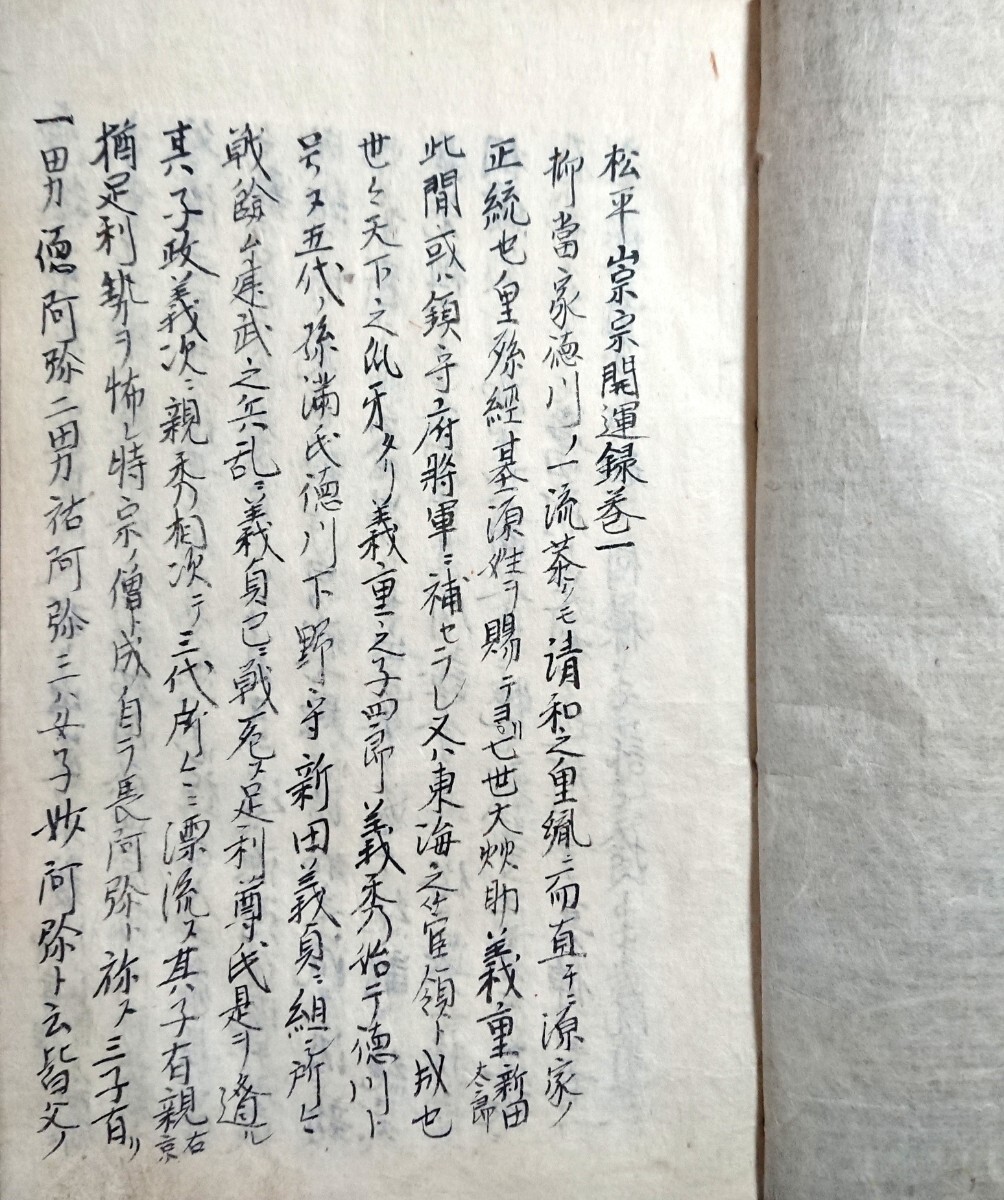 松平崇宗開運録巻一
抑當家徳川ノ一流恭クモ清和之皇胤ニ而直チニ源家ノ
正統也皇孫經基源姓ヲ賜テヨリ七世大炊助義重新田太郎
此間或ハ鎮守府将軍ニ補セラレ又ハ東海之管領ト成也
世々天下之爪牙タリ義重之子四郎義秀始テ徳川ト
号ス五代ノ孫満氏徳川下野守新田義貞ニ組シ所々ニ
戦建武之兵乱ニ義貞已ニ戦死ス足利尊氏是ヲ
其子政義次ニ親秀相次テ三代所々ニ漂流ス其子有親右京
猶足利勢ヲ怖レ時宗ノ僧ト成自ラ長阿弥ト称ス三子有リ
一男徳阿弥二男祐阿弥三ハ女子妙阿弥ト云皆父ノ